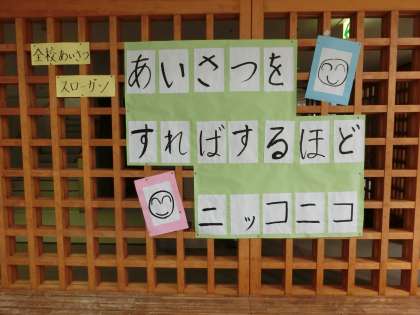 全校あいさつ
スローガン
あいさつを
すればするほど
ニッコニコ